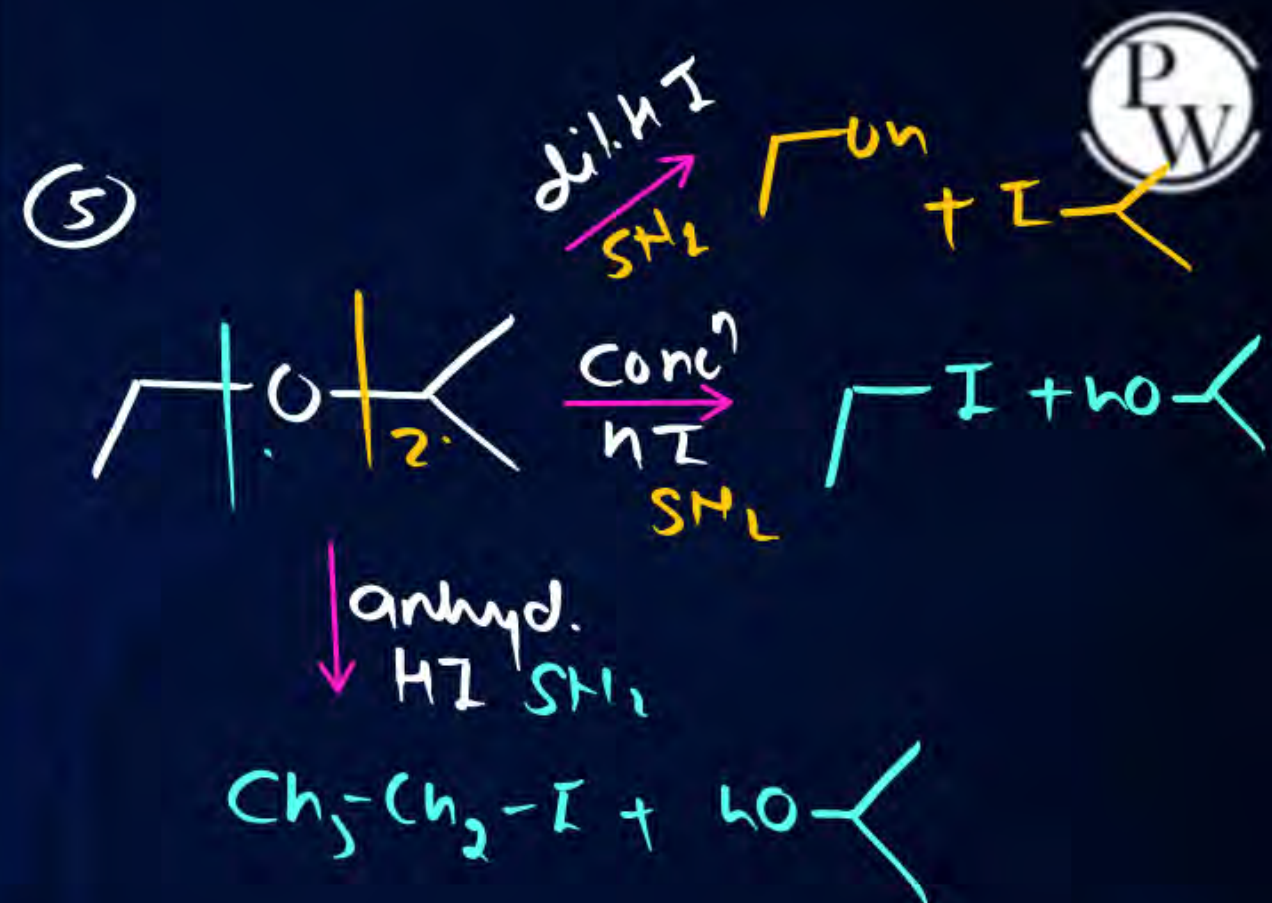 P
W
5
dil. HI
SN2
OH
+ I
O
2°
Concn
HI
SN2
I + HO
anhyd.
HI SN2
CH3-CH2-I + HO